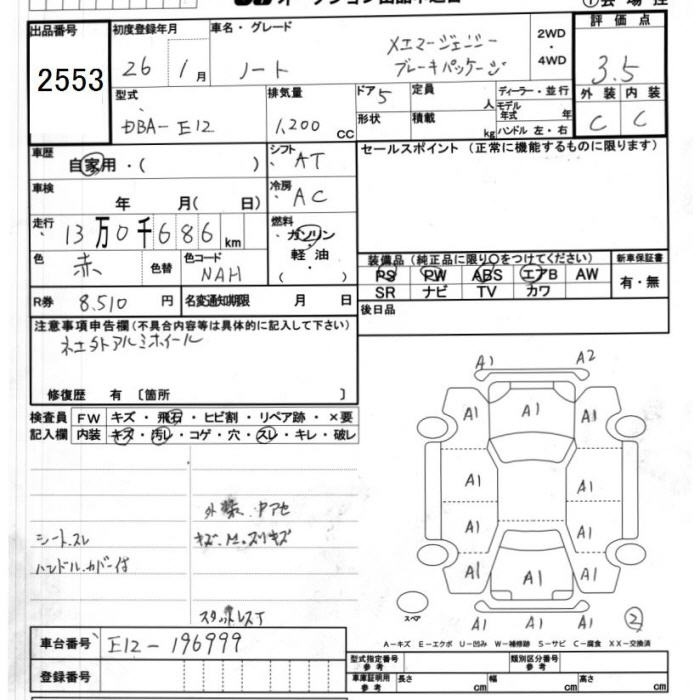 オークション出品申込書
出品番号 初度登録年月 車名・グレード 2WD・4WD 評価点
2553 26 1月 ノート Xエマージェンシーブレーキパッケージ 3.5
型式 排気量 ドア 定員 ディーラー・並行 外装 内装
DBA-E12 1,200 CC 5 人 モデル年式 年 C C
形状 積載 kg ハンドル 左・右
車歴 自家用・( ) シフト AT セールスポイント (正常に機能するものに限ります)
車検 年 月( 日) 冷房 AC
走行 13万0千686km 燃料 ガソリン・軽油・( )
色 赤 色替 色コード NAH 装備品(純正品に限り○をつけてください) 新車保証書
PS PW ABS エアB AW 有・無
SR ナビ TV カワ
R券 8,510 円 名変通知期限 月 日 後日品
注意事項申告欄(不具合内容等は具体的に記入して下さい)
社外アルミホイール
修復歴 有 〔箇所 〕
検査員 FW キズ・飛石・ヒビ割・リペア跡・×要
記入欄 内装 キズ・汚レ・コゲ・穴・スレ・キレ・破レ
A1 A2
A1 A1 A1
A1 A1
A1 A1
A1 A1 A1
A1 A1 A1
外装
シートスレ キズ
ハンドルカバー付
スタッドレス
スペア 2
車台番号 E12-196999 A-キズ E-エクボ U-凹み W-補修跡 S-サビ C-腐食 XX-交換済
登録番号 型式指定番号 参考 類別区分番号 参考
車庫証明用 参考 長さ cm 幅 cm 高さ cm